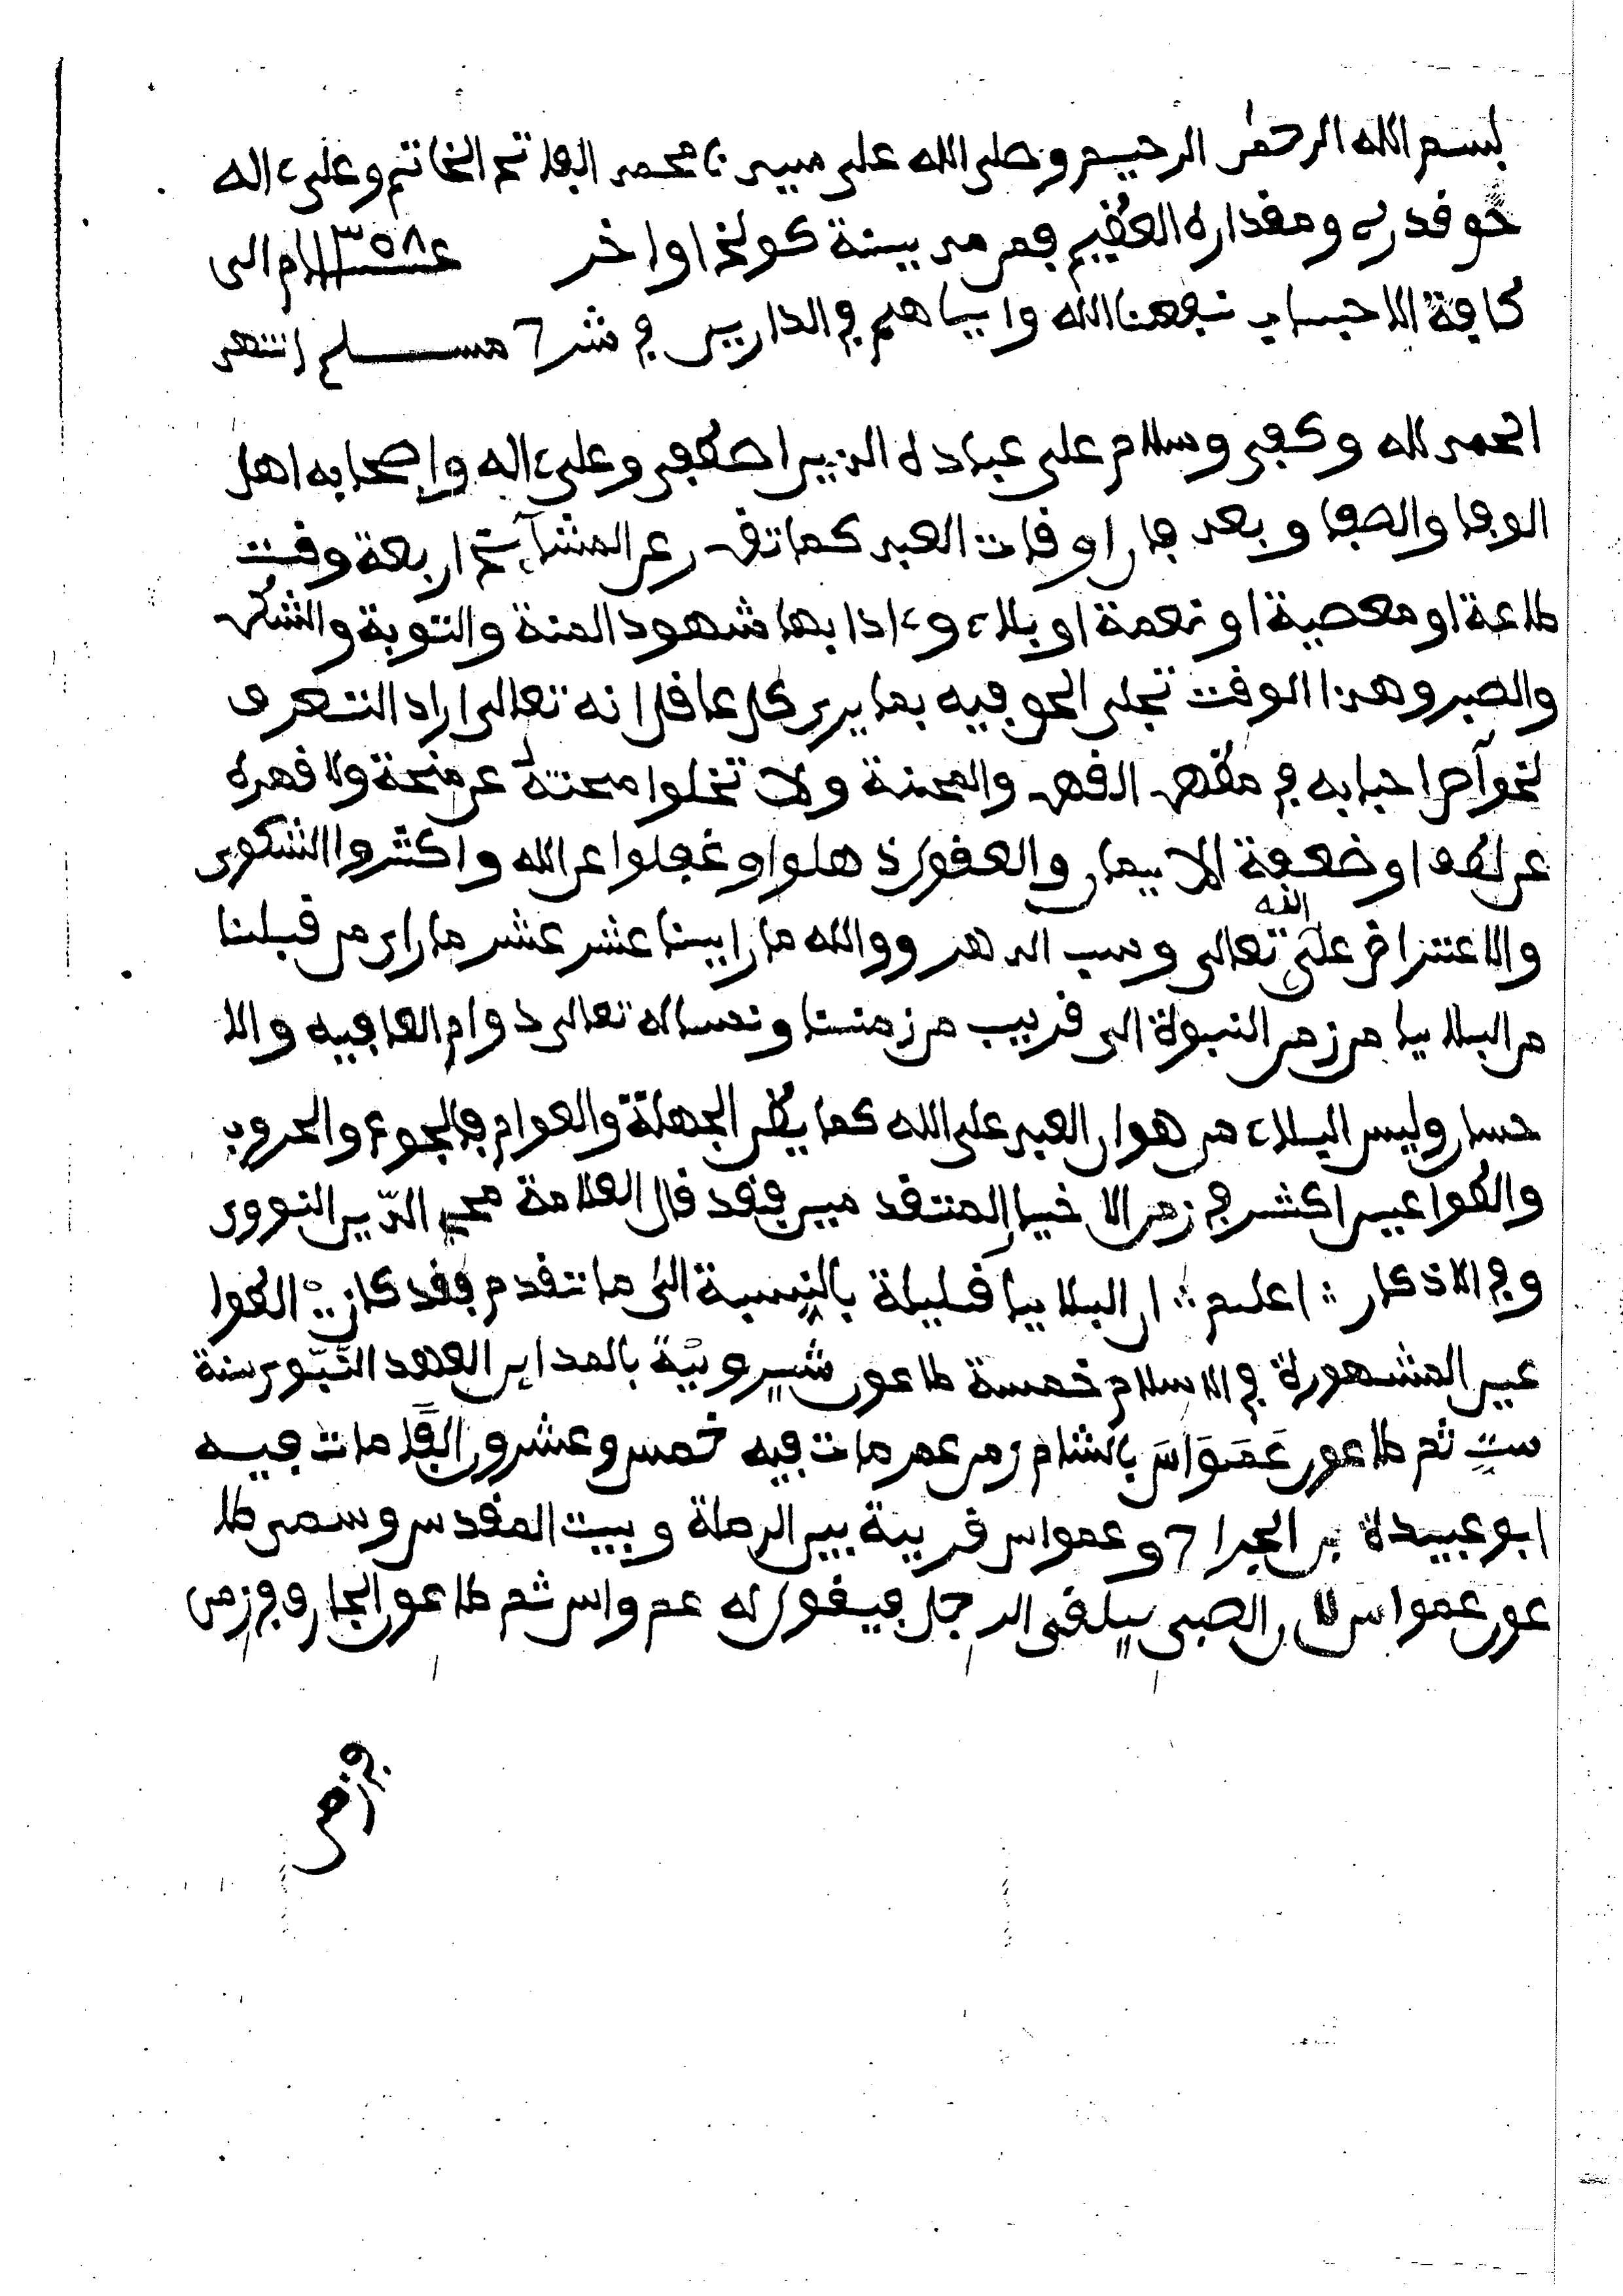 بسم الله الرحمن الرحيم وصلى الله على سيدنا محمد الفاتح الخاتم وعلى ءاله
حق قدره ومقداره العظيم فمن مدينة كولخ اواخر عــ١٣٥٨ــام الى
كافة الاحباب نفعنا الله واياهم في الدارين في شرح مسلم انتهى
الحمد لله وكفى وسلام على عباده الذين اصطفى وعلى ءاله واصحابه اهل
الوفا والصفا وبعد فان اوقات العبد كما تقرر عن المشآئخ اربعة وقت
طاعة او معصية او نعمة او بلاء وءادابها شهود المنة والتوبة والشكر
والصبر وهذا الوقت تجلى الحق فيه بما يرى كل عاقل انه تعالى اراد التعرف
لخوآص احبابه في مظهر القهر والمحنة ولا تخلوا محنته عن منحة ولا قهره
عن لطف او ضعفة الايمان والعقول ذهلوا وغفلوا عن الله واكثروا الشكوى
والاعتراض على الله تعالى وسب الدهر ووالله ما راينا عشر عشر ما راى من قبلنا
من البلايا من زمن النبوة الى قريب من زمننا ونساله تعالى دوام العافيه والا
حسان وليس البلاء من هوان العبد على الله كما يظن الجهلة والعوام فالجوع والحروب
والطواعين اكثر في زمن الاخيار المتقدمين فقد قال العلامة محي الدّين النووى
وفي الاذكار ؛ اعلم ؛ ان البلايا قليلة بالنِسبة الى ما تقدم فقد كانت الطوا
عين المشهورة في الاسلام خمسة طاعون شيرويّة بالمداين العهد النّبّوى سنة
ستٍ ثم طاعون عَمَوَاسَ بالشام زمن عمر مات فيه خمس وعشرون الفًا مات فيه
ابو عبيدة بن الجراح وعمواس قرية بين الرملة وبيت المقدس وسمى طا
عون عمواس لان الصبى يلقى الرجل فيقول له عم واس ثم طاعون الجارف في زمن
في زمن